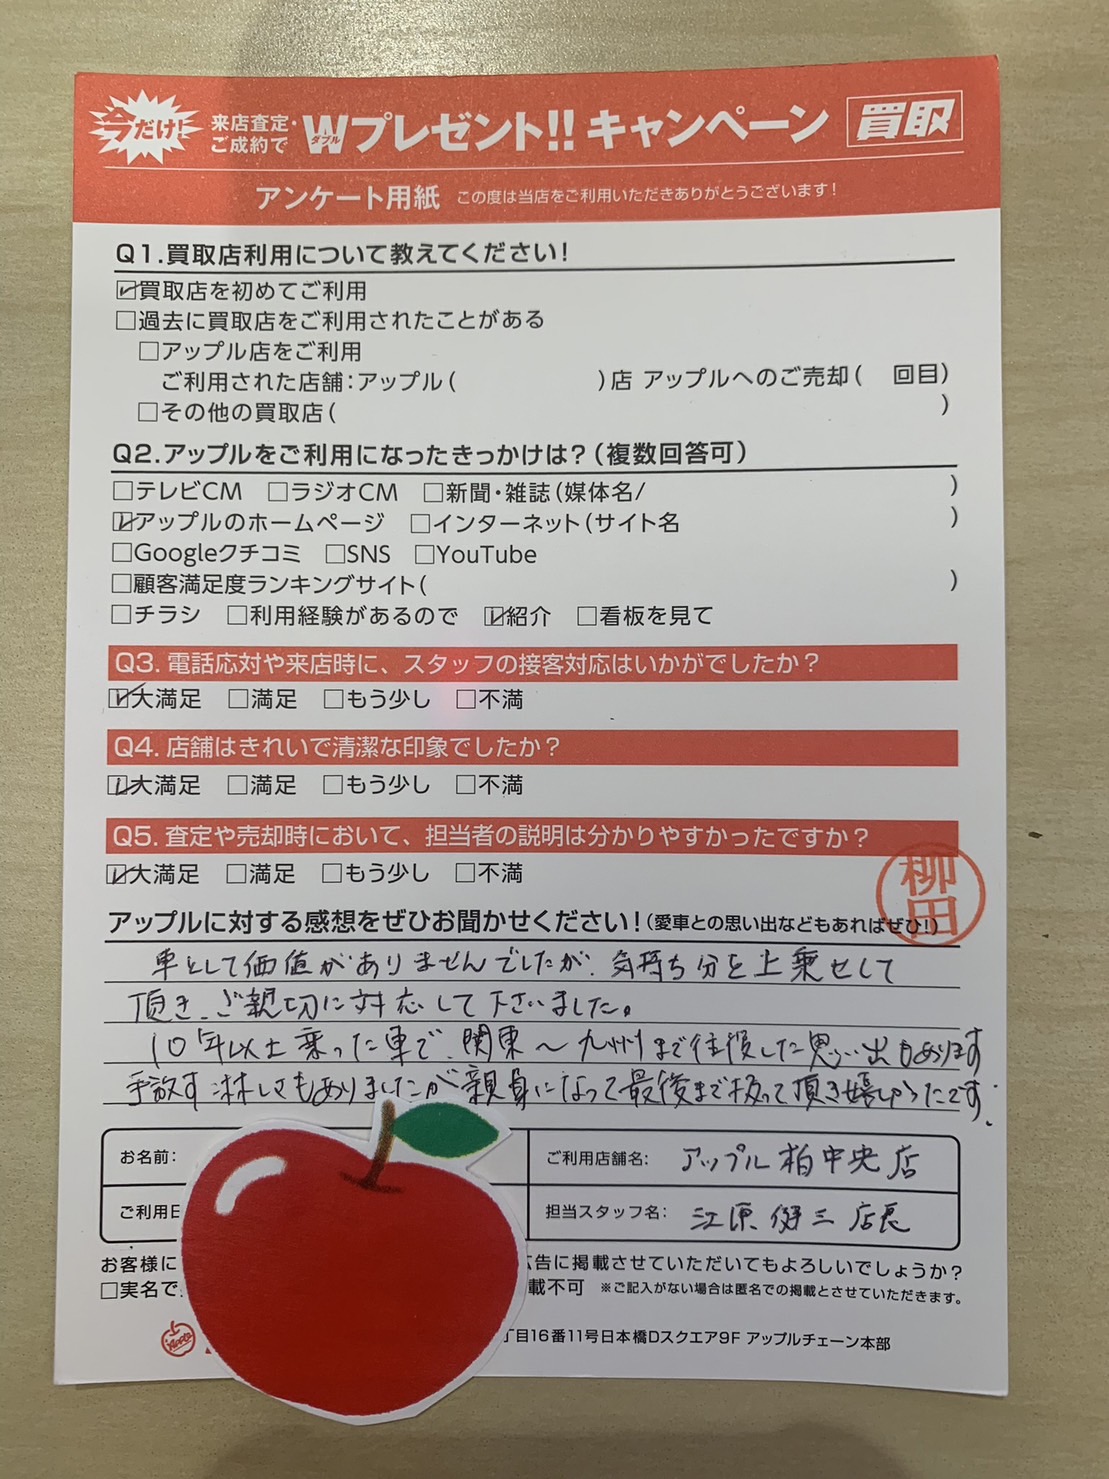 今だけ!
来店査定・ご成約で Wダブルプレゼント!! キャンペーン 買取
アンケート用紙 この度は当店をご利用いただきありがとうございます!
Q1.買取店利用について教えてください!
☑買取店を初めてご利用
□過去に買取店をご利用されたことがある
□アップル店をご利用
ご利用された店舗:アップル( )店 アップルへのご売却( 回目)
□その他の買取店( )
Q2.アップルをご利用になったきっかけは?(複数回答可)
□テレビCM □ラジオCM □新聞・雑誌(媒体名/ )
☑アップルのホームページ □インターネット(サイト名 )
□Googleクチコミ □SNS □YouTube
□顧客満足度ランキングサイト( )
□チラシ □利用経験があるので ☑紹介 □看板を見て
Q3. 電話応対や来店時に、スタッフの接客対応はいかがでしたか?
☑大満足 □満足 □もう少し □不満
Q4. 店舗はきれいで清潔な印象でしたか?
☑大満足 □満足 □もう少し □不満
Q5. 査定や売却時において、担当者の説明は分かりやすかったですか?
☑大満足 □満足 □もう少し □不満
柳田
アップルに対する感想をぜひお聞かせください!(愛車との思い出などもあればぜひ!)
車として価値がありませんでしたが、気持ち分を上乗せして
頂き、ご親切に対応して下さいました。
10年以上乗った車で、関東〜九州まで往復した思い出もあります
手放す淋しさもありましたが親身になって最後まで扱って頂き嬉しかったです.
お名前: ご利用店舗名: アップル柏中央店
ご利用日 担当スタッフ名: 江原 健三 店長
お客様に 広告に掲載させていただいてもよろしいでしょうか?
□実名で 載不可 ※ご記入がない場合は匿名での掲載とさせていただきます。
Apple 丁目16番11号日本橋Dスクエア9F アップルチェーン本部